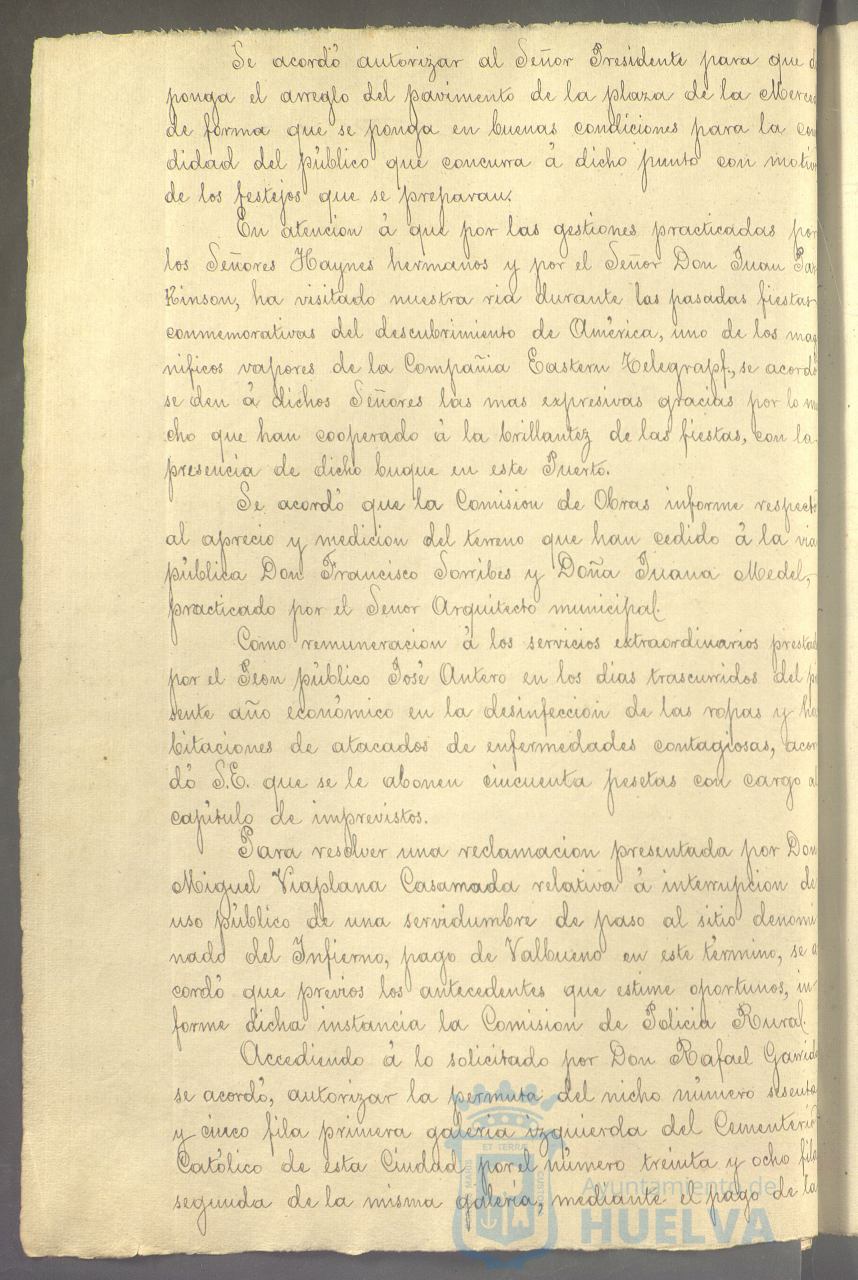 Se acordó autorizar al Señor Presidente para que d
ponga el arreglo del pavimento de la plaza de la Merced
de forma que se ponga en buenas condiciones para la co
didad del público que concurra á dicho punto con motiv
de los festejos que se preparan.
En atencion á que por las gestiones practicadas por
los Señores Haynes hermanos y por el Señor Don Juan Par
Kinson, ha visitado nuestra ria durante las pasadas fiestas
conmemorativas del descubrimiento de América, uno de los mag
nificos vapores de la Compañia Eastern Telegrapf, se acordó
se den á dichos Señores las mas expresivas gracias por lo mu
cho que han cooperado á la brillantez de las fiestas, con la
presencia de dicho buque en este Puerto.
Se acordó que la Comision de Obras informe respecto
al aprecio y medicion del terreno que han cedido á la via
pública Don Francisco Sorribes y Doña Juana Medel,
practicado por el Señor Arquitecto municipal.
Como remuneracion á los servicios extraordinarios prestad
por el Peon público José Antero en los dias trascurridos del pr
sente año económico en la desinfeccion de las ropas y ha
bitaciones de atacados de enfermedades contagiosas, acor
dó S.E. que se le abonen cincuenta pesetas con cargo al
capítulo de imprevistos.
Para resolver una reclamacion presentada por Don
Miguel Viaplana Casamada relativa á interrupcion de
uso público de una servidumbre de paso al sitio denomi
nado del Infierno, pago de Valbueno en este término, se a
cordó que previos los antecedentes que estime oportunos, in-
forme dicha instancia la Comision de Policia Rural.
Accediendo á lo solicitado por Don Rafael Garrido
se acordó, autorizar la permuta del nicho número sesenta
y cinco fila primera galeria izquierda del Cementerio
Católico de esta Ciudad por el número treinta y ocho fila
segunda de la misma galeria, mediante el pago de la
Ayuntamiento de
HUELVA